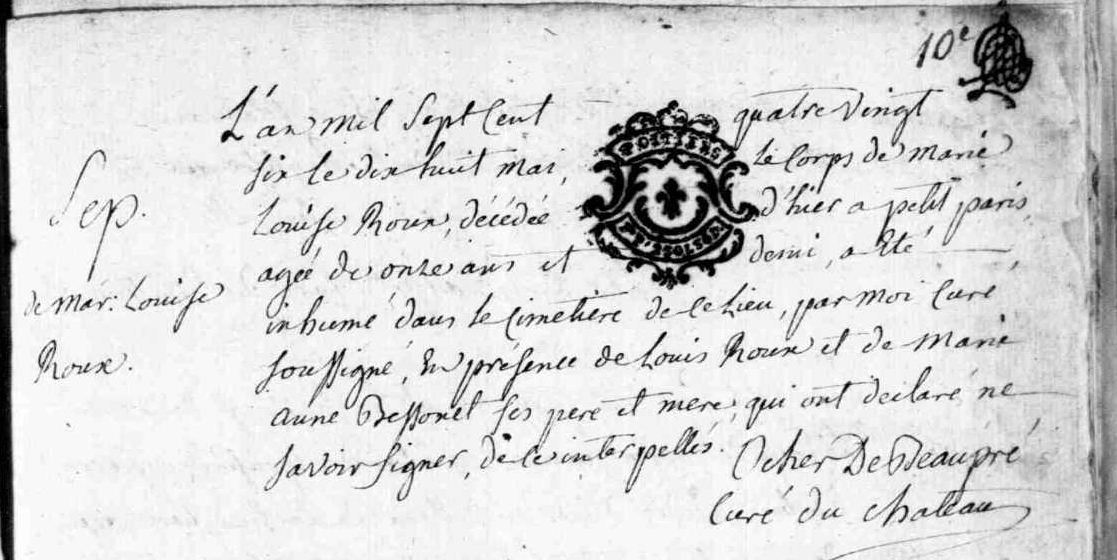 10e
L'an mil Sept Cent quatre vingt
six le dix huit mai, Le Corps de marie
Louise Roux, décédée d'hier a petit paris,
agée de onze ans et demi, a Eté
inhumé dans le Cimetière de ce Lieu, par moi Curé
soussigné, En présence de Louis Roux et de marie
anne ses pere et mere, qui ont declaré ne
savoir signer, de ce interpellés. De Beaupré
Curé du chateau
Sep.
de mar: Louise
Roux.
POITIERS